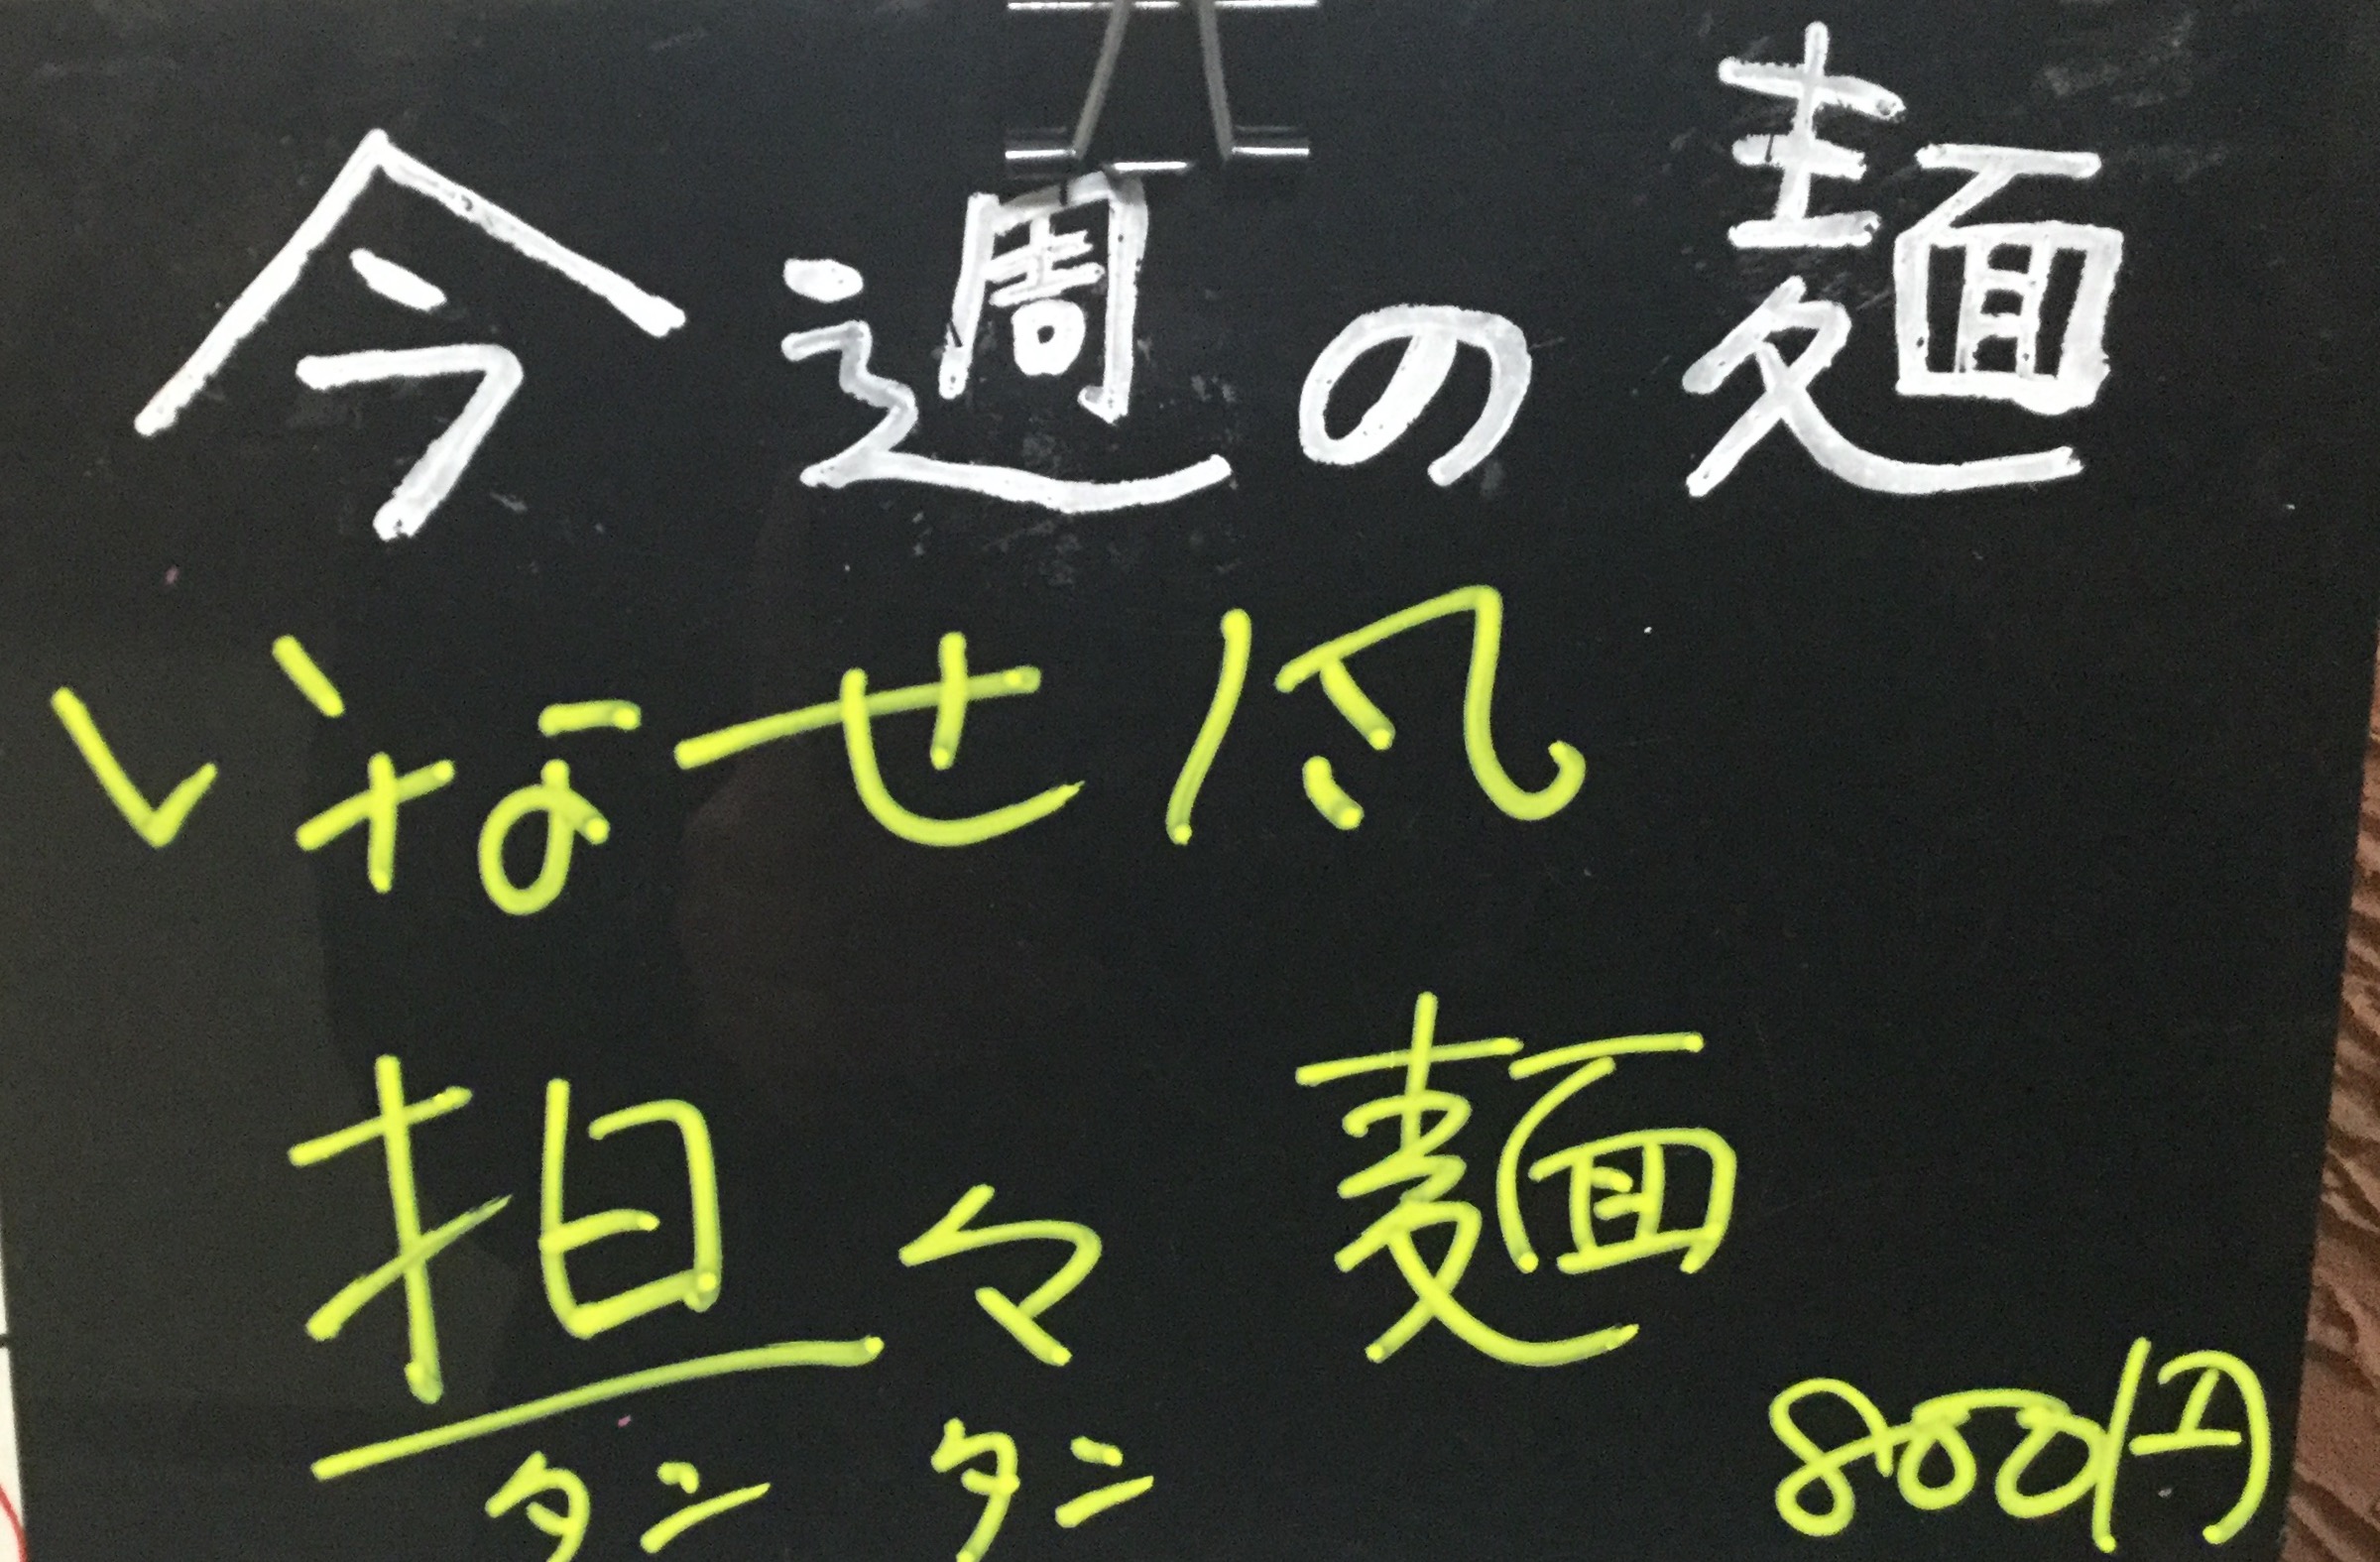 今週の麺
いなせ風
担々麺
タンタン
800円